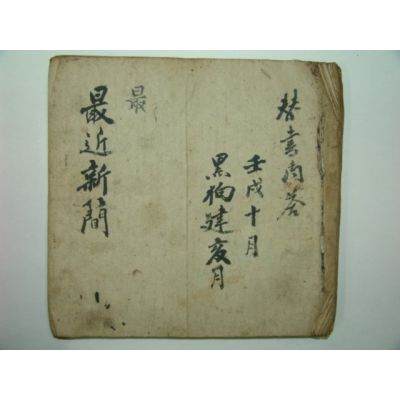 替書問答
壬戌十月
黑狗建亥月
最
最近新簡